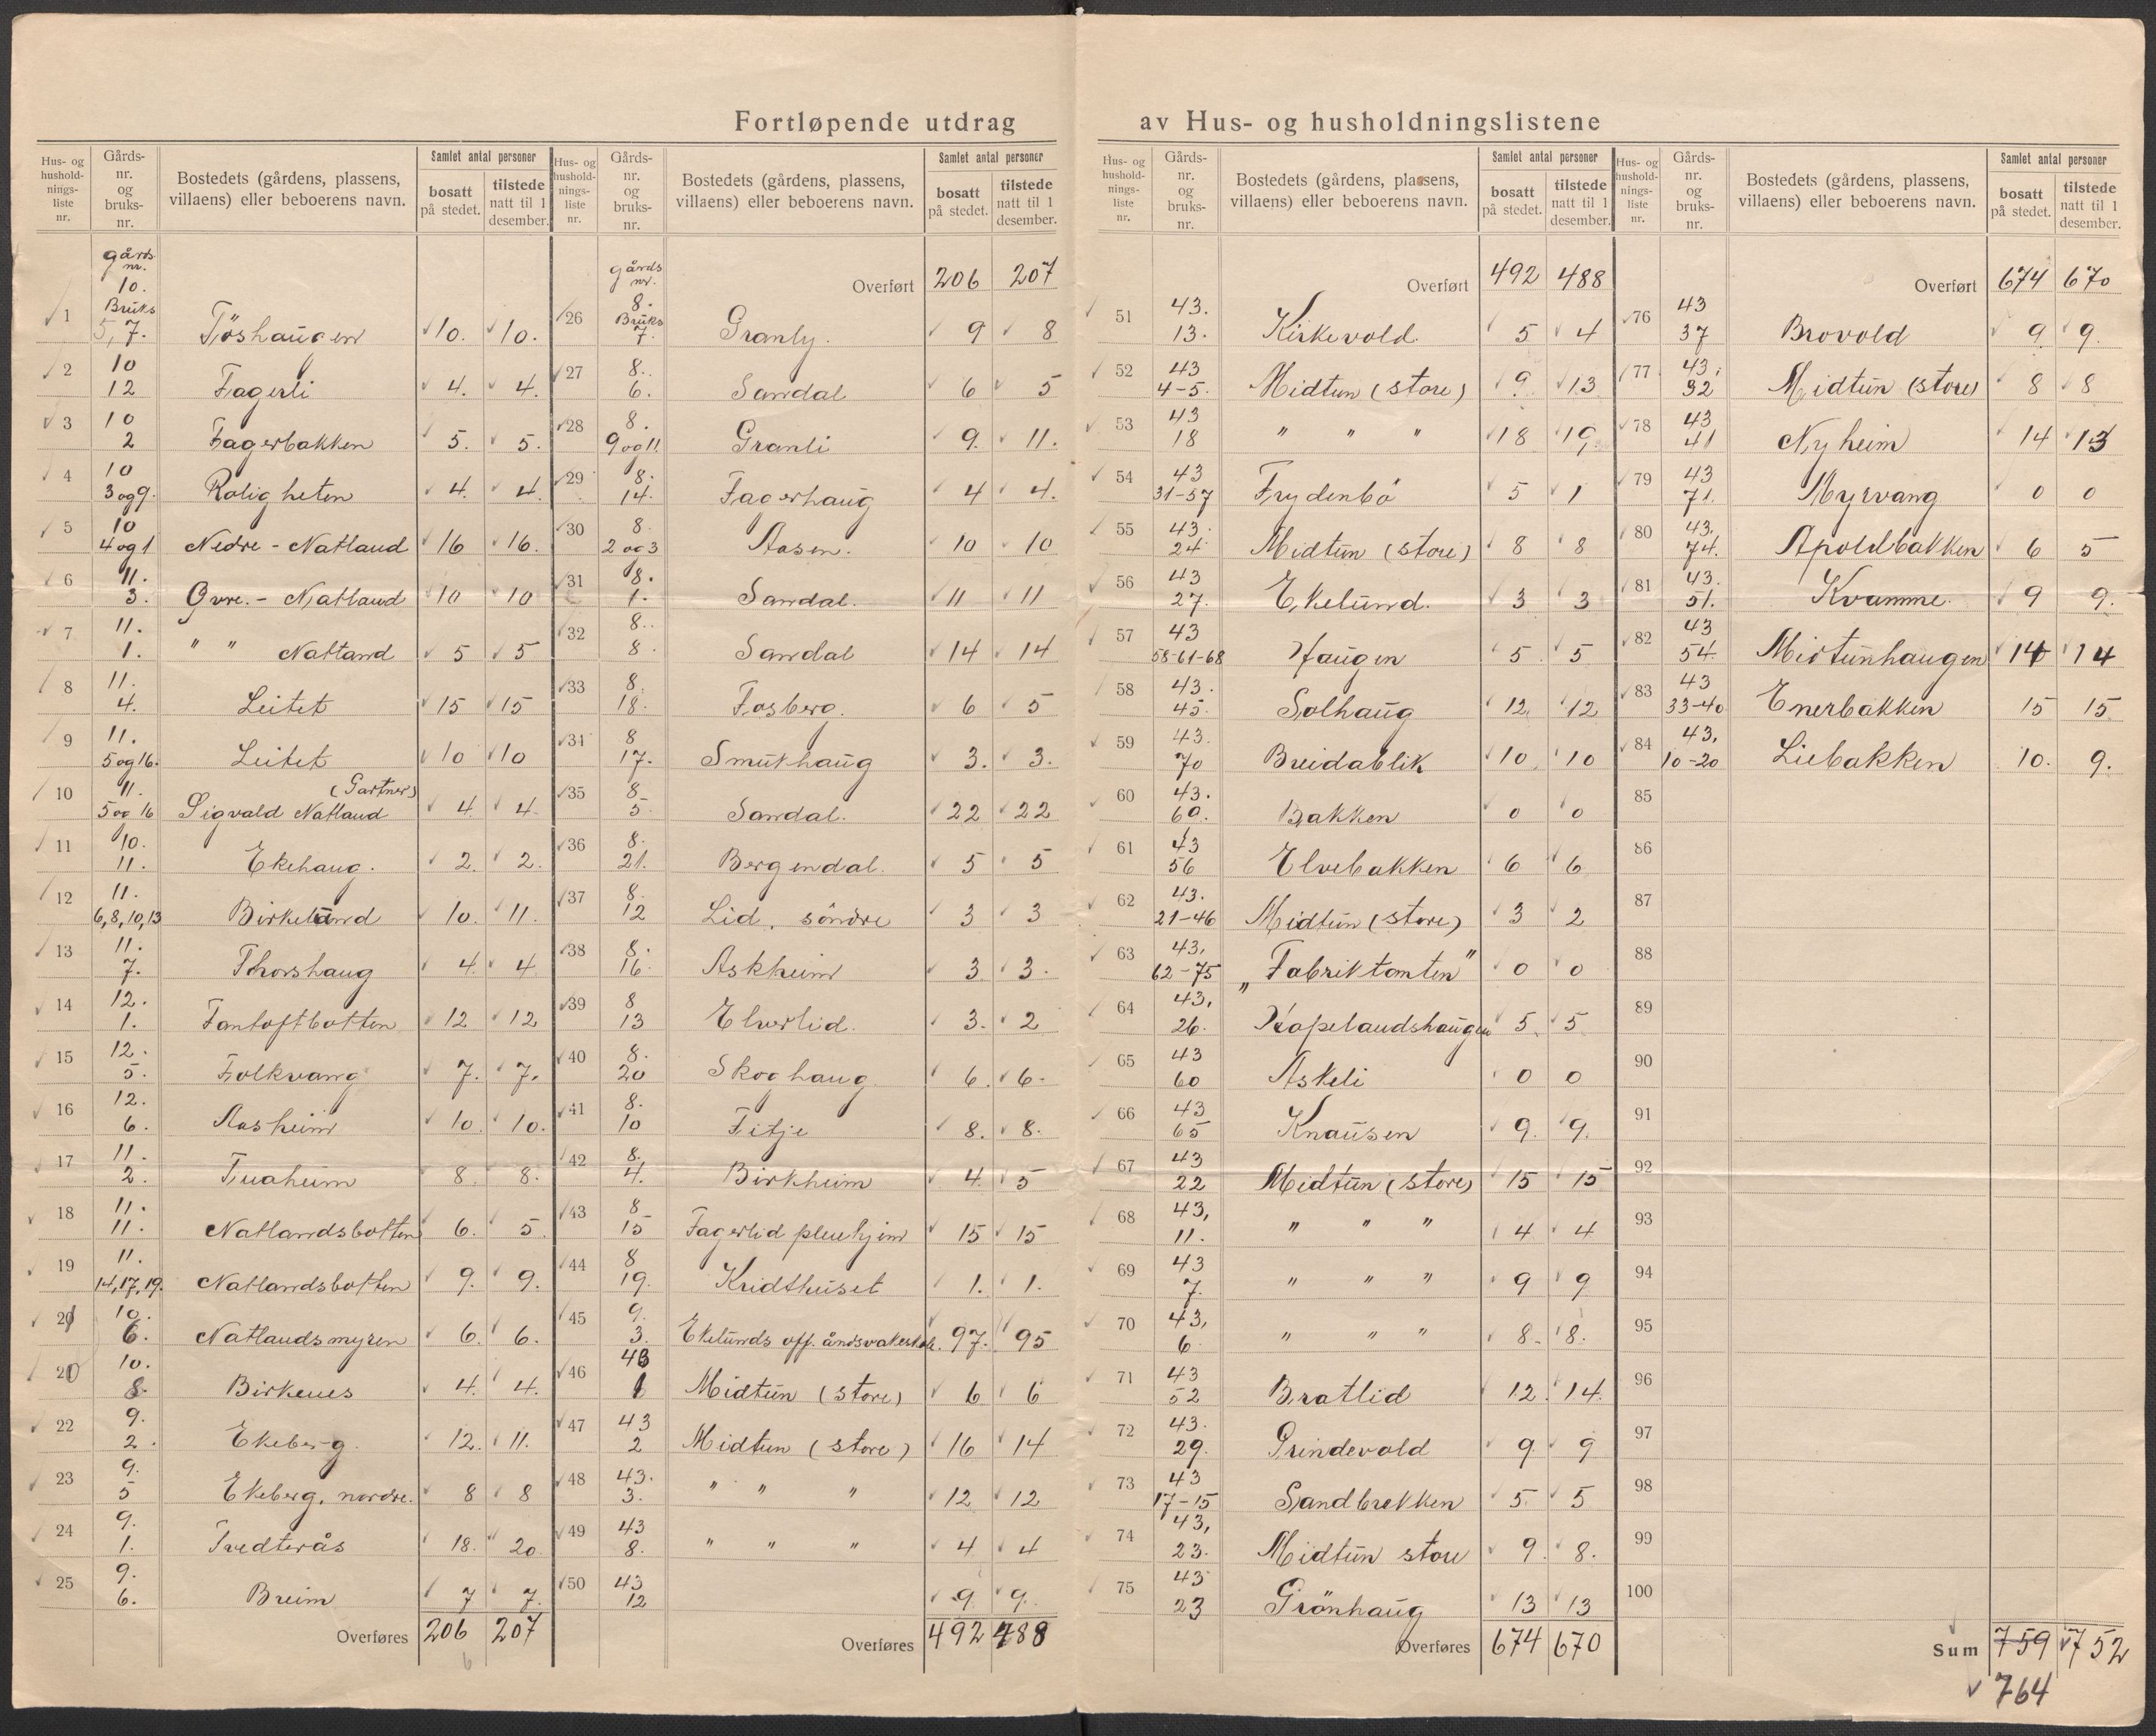 Fortløpende utdrag av Hus- og husholdningslistene
Hus- og husholdningsliste nr. | Gårds-nr. og bruks-nr. | Bostedets (gårdens, plassens, villaens) eller beboerens navn. | Samlet antal personer bosatt på stedet. | tilstede natt til 1 desember.
gårds nr.
1 | 10. Bruks 5,7. | Töshaugen | 10. | 10.
2 | 10 12 | Fagerli | 4. | 4.
3 | 10 2 | Fagerbakken | 5. | 5.
4 | 10 3 og 9. | Roligheten | 4. | 4.
5 | 10 4 og 1 | Nedre - Natland | 16 | 16.
6 | 11. 3. | Øvre. - Natland | 10 | 10
7 | 11. 1. | " " Natland | 5 | 5
8 | 11. 4. | Leitet | 15 | 15
9 | 11. 5 og 16. | Leitet | 10 | 10
10 | 11. 5 og 16 | Sigvald Natland (Gartner) | 4 | 4
11 | 10. 11. | Ekehaug. | 2. | 2.
12 | 11. 6, 8, 10, 13 | Birkelund | 10. | 11.
13 | 11. 7. | Thorshaug | 4. | 4
14 | 12. 1. | Fantoftbotten | 12 | 12
15 | 12. 5. | Folkvang | 7. | 7.
16 | 12. 6. | Aasheim | 10. | 10.
17 | 11. 2. | Furuheim | 8. | 8.
18 | 11. 11. | Natlandsbotten | 6. | 5.
19 | 11. 14, 17, 19. | Natlandsbotten | 9. | 9.
21 | 10. 6. | Natlandsmyren | 6. | 6.
20 | 10. 8. | Birkenes | 4. | 4.
22 | 9. 2. | Ekeberg. | 12. | 11.
23 | 9. 5 | Ekeberg, nordre. | 8 | 8
24 | 9. 1. | Tvedterås | 18. | 20.
25 | 9. 6. | Breim | 7 | 7.
Overføres 206 207
Hus- og husholdnings-liste nr. | Gårds-nr. og bruks-nr. | Bostedets (gårdens, plassens, villaens) eller beboerens navn. | Samlet antal personer bosatt på stedet. | tilstede natt til 1 desember.
gårds nr. Overført 206 207
26 | 8. Bruks 7. | Granly. | 9 | 8
27 | 8. 6. | Sandal | 6 | 5
28 | 8. 9 og 11. | Granli | 9. | 11.
29 | 8. 14. | Fagerhaug | 4 | 4.
30 | 8. 2 og 3 | Aasen. | 10 | 10
31 | 8. 1. | Sandal. | 11 | 11
32 | 8. 8. | Sandal | 14 | 14
33 | 8. 18. | Fosberg. | 6 | 5
34 | 8 17. | Smukhaug | 3. | 3.
35 | 8. 5 | Sandal. | 22 | 22
36 | 8. 21. | Bergendal. | 5 | 5
37 | 8. 12 | Lid, söndre | 3 | 3
38 | 8. 16. | Askheim | 3. | 3.
39 | 8 13 | Elverlid. | 3. | 2
40 | 8. 20 | Skoghaug. | 6. | 6.
41 | 8. 10 | Fitje | 8. | 8.
42 | 8. 4. | Birkheim | 4. | 5
43 | 8 15 | Fagerlid pleiehjem | 15 | 15
44 | 8 19. | Kridthuset | 1. | 1.
45 | 9. 3. | Ekelunds off. åndsvakeskole. | 97. | 95
46 | 43 1 | Midtun (store) | 6 | 6
47 | 43 2 | Midtun (store) | 16 | 14
48 | 43. 3. | " " " | 12 | 12
49 | 43 8. | " " " | 4 | 4
50 | 43 12 | 9. | 9.
Overføres 492 488
Hus- og husholdnings-liste nr. | Gårds-nr. og bruks-nr. | Bostedets (gårdens, plassens, villaens) eller beboerens navn. | Samlet antal personer bosatt på stedet. | tilstede natt til 1 desember.
Overført 492 488
51 | 43. 13. | Kirkevold | 5 | 4
52 | 43 4-5. | Midtun (store) | 9. | 13
53 | 43 18 | " " " | 18 | 19.
54 | 43 31-57 | Frydenbö | 5 | 1
55 | 43. 24 | Midtun (store) | 8 | 8
56 | 43 27. | Ekelund. | 3 | 3
57 | 43 58-61-68 | Haugen | 5 | 5
58 | 43. 45. | Solhaug | 12 | 12
59 | 43. 70 | Breidablik | 10 | 10
60 | 43. 69. | Bakken | 0 | 0
61 | 43 56 | Elvebakken | 6 | 6
62 | 43. 21-46 | Midtun (store) | 3 | 2
63 | 43, 62-75 | „Fabriktomten" | 0 | 0
64 | 43, 26. | Hopelandshaugen | 5 | 5
65 | 43 60 | Askeli | 0 | 0
66 | 43 65 | Knausen | 9. | 9.
67 | 43 22 | Midtun (store) | 15 | 15
68 | 43, 11. | " " " | 4 | 4
69 | 43 7. | " " " | 9 | 9
70 | 43, 6 | " " " | 8. | 8.
71 | 43 52 | Bratlid | 12 | 14.
72 | 43. 29. | Grindevold | 9. | 9
73 | 43 17-15 | Sandbrekken | 5. | 5
74 | 43, 23. | Midtun store | 9. | 8.
75 | 43 23 | Grönhaug | 13 | 13
Overføres 674 670
Hus- og husholdnings-liste nr. | Gårds-nr. og bruks-nr. | Bostedets (gårdens, plassens, villaens) eller beboerens navn. | Samlet antal personer bosatt på stedet. | tilstede natt til 1 desember.
Overført 674 670
76 | 43 37 | Brovold | 9. | 9.
77 | 43. 32 | Midtun (store) | 8 | 8
78 | 43 41 | Nyheim | 14 | 13
79 | 43 71. | Myrvang | 0 | 0
80 | 43, 74. | Apoldbakken | 6 | 5
81 | 43. 51. | Kvamme. | 9 | 9.
82 | 43 54. | Midtunhaugen | 14 | 14
83 | 43 33-40 | Enerbakken | 15 | 15
84 | 43, 10-20 | Liebakken | 10. | 9.
85
86
87
88
89
90
91
92
93
94
95
96
97
98
99
100
Sum 759 752
764